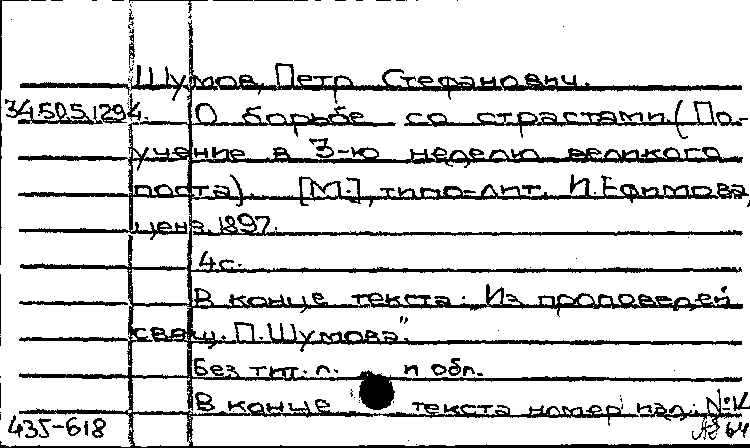 Шумов, Петр Стефанович.
34.50.5.1294. О борьбе со страстями. (По-
учение в 3-ю неделю великого
поста). [М.], типо-лит. И. Ефимова,
ценз. 1897.
4с.
В конце текста: Из проповедей
свящ. П. Шумова".
Без тит. л. и обл.
В конце текста номер изд: №V
435-618